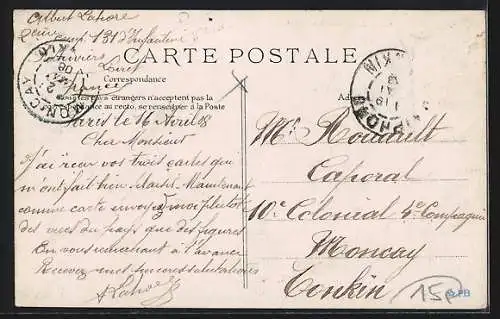 Albert Lahore
131 d'Infanterie
Loiret
France
CARTE POSTALE
Correspondance
étrangers n'acceptent pas la
au recto, se renseigner à la Poste
MONCAY
TONKIN
Paris le 16 Avril 08
Cher Monsieur
J'ai reçu vos trois cartes qui
m'ont fait bien plaisir. Maintenant
comme carte envoyez moi plutôt
des vues du pays que des figures
En vous remerciant à l'avance
Recevez mes sincères salutations
A Lahore
Mr. Rouault
Caporal
10e Colonial 4e Compagnie
Moncay
Tonkin
15P